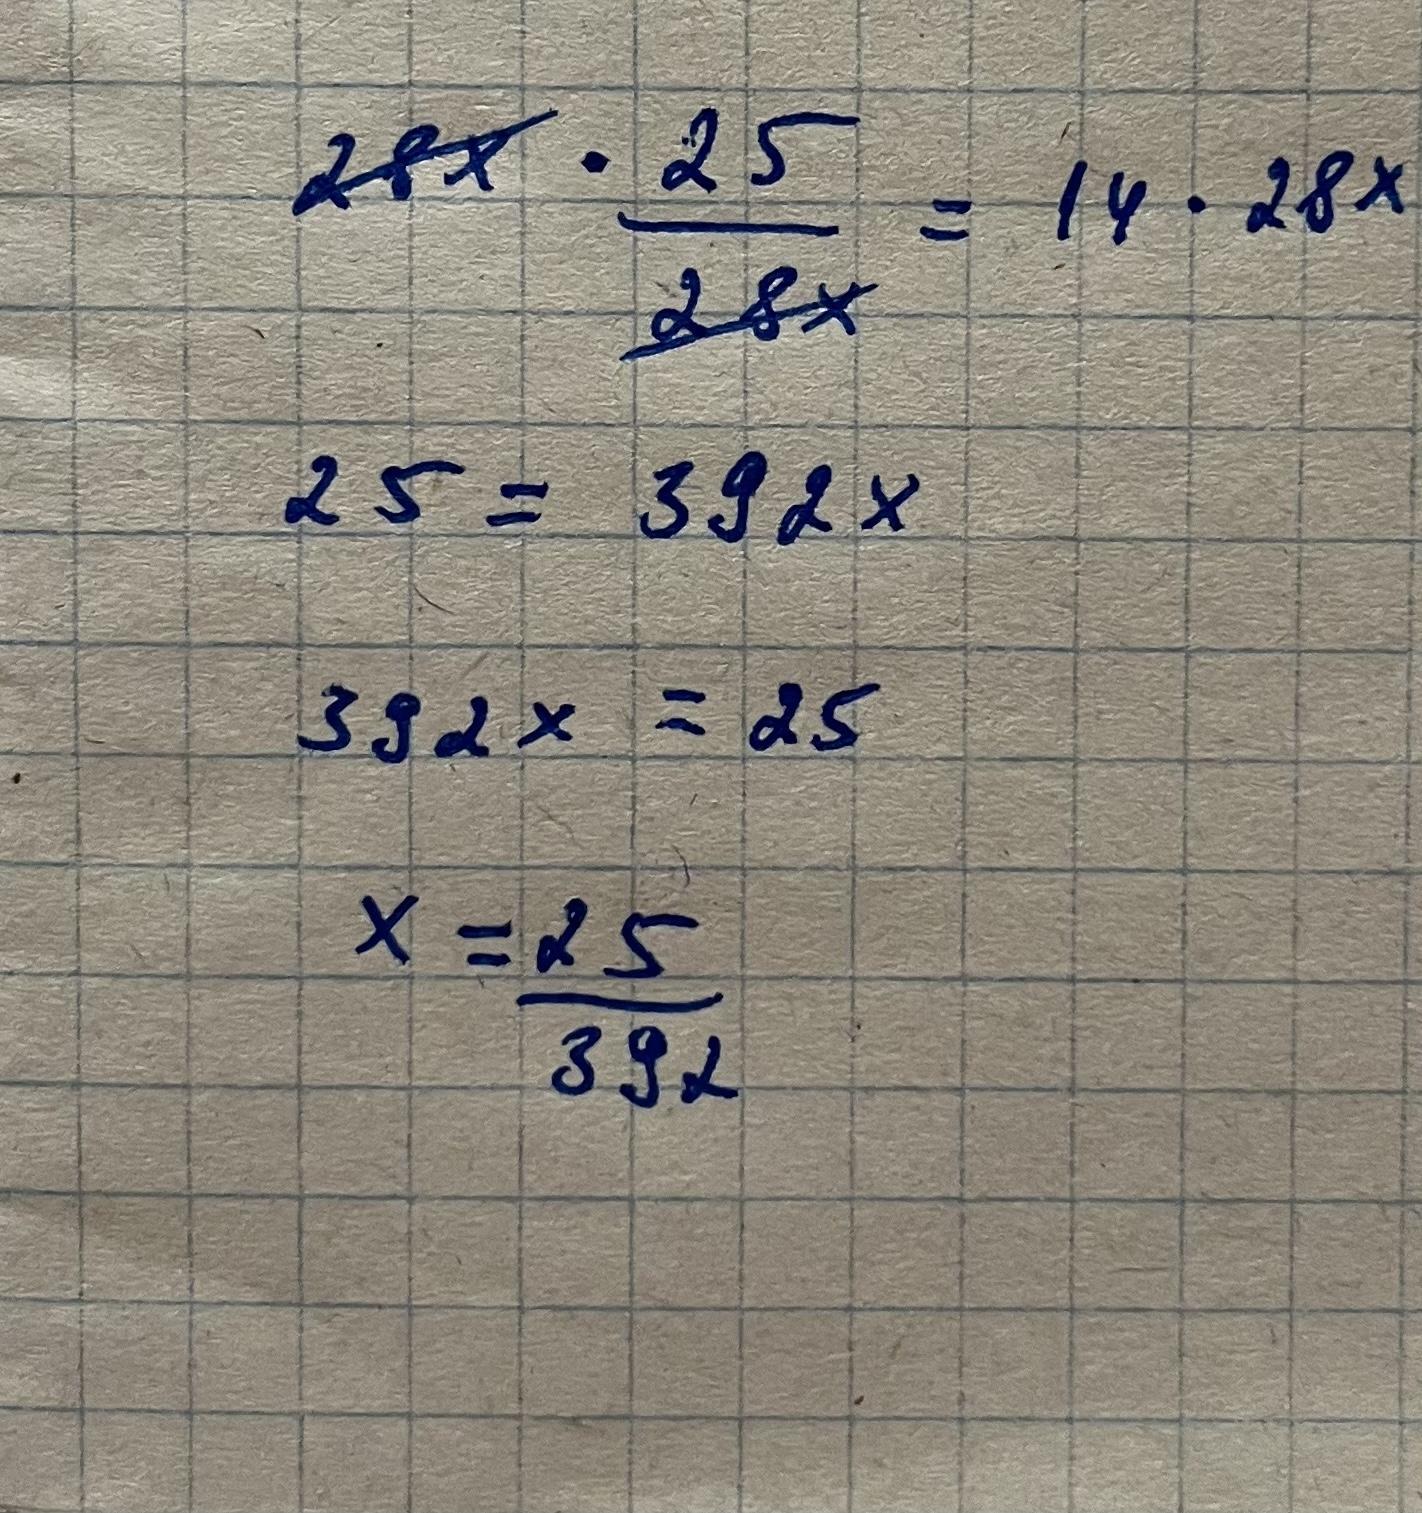 28x · 25/28x = 14 · 28x
25 = 392x
392x = 25
x = 25/392